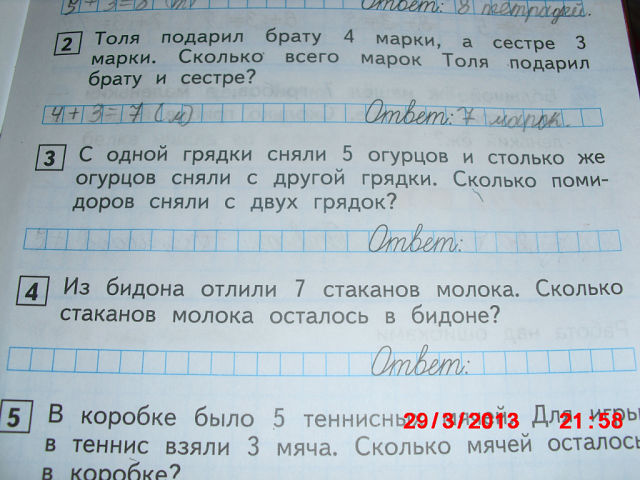 Ответ: 8 тетрадей.
2 Толя подарил брату 4 марки, а сестре 3
марки. Сколько всего марок Толя подарил
брату и сестре?
4+3=7 (м) Ответ: 7 марок.
3 С одной грядки сняли 5 огурцов и столько же
огурцов сняли с другой грядки. Сколько поми-
доров сняли с двух грядок?
Ответ:
4 Из бидона отлили 7 стаканов молока. Сколько
стаканов молока осталось в бидоне?
Ответ:
5 В коробке было 5 теннисных мячей. Для игры
29/3/2013 21:58
в теннис взяли 3 мяча. Сколько мячей осталось
в коробке?